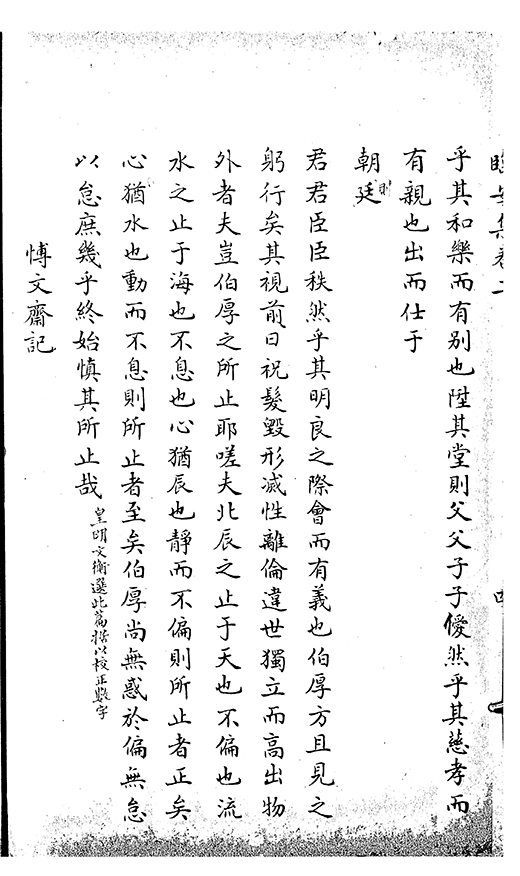 集卷二
四
乎其和樂而有別也陞其堂則父父子子僾然乎其慈孝而
有親也出而仕于
朝廷
君君臣臣秩然乎其明良之際會而有義也伯厚方且見之
躬行矣其視前日祝髮毀形滅性離倫違世獨立而高出物
外者夫豈伯厚之所止耶嗟夫北辰之止于天也不偏也流
水之止于海也不息也心猶辰也靜而不偏則所止者正矣
心猶水也動而不息則所止者至矣伯厚尚無惑於偏無怠
以怠庶幾乎終始慎其所止哉
皇明文衡選此篇據以校正數字
博文齋記